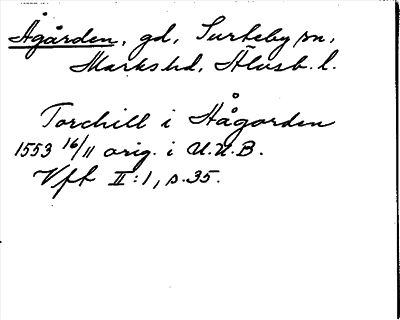 Ågården, gd, Surteby sn,
Marks hd, Älvsb. l.
Torchill i Hågorden
1553 16/11 orig. i U.U.B.
Vft II:1, s.35.